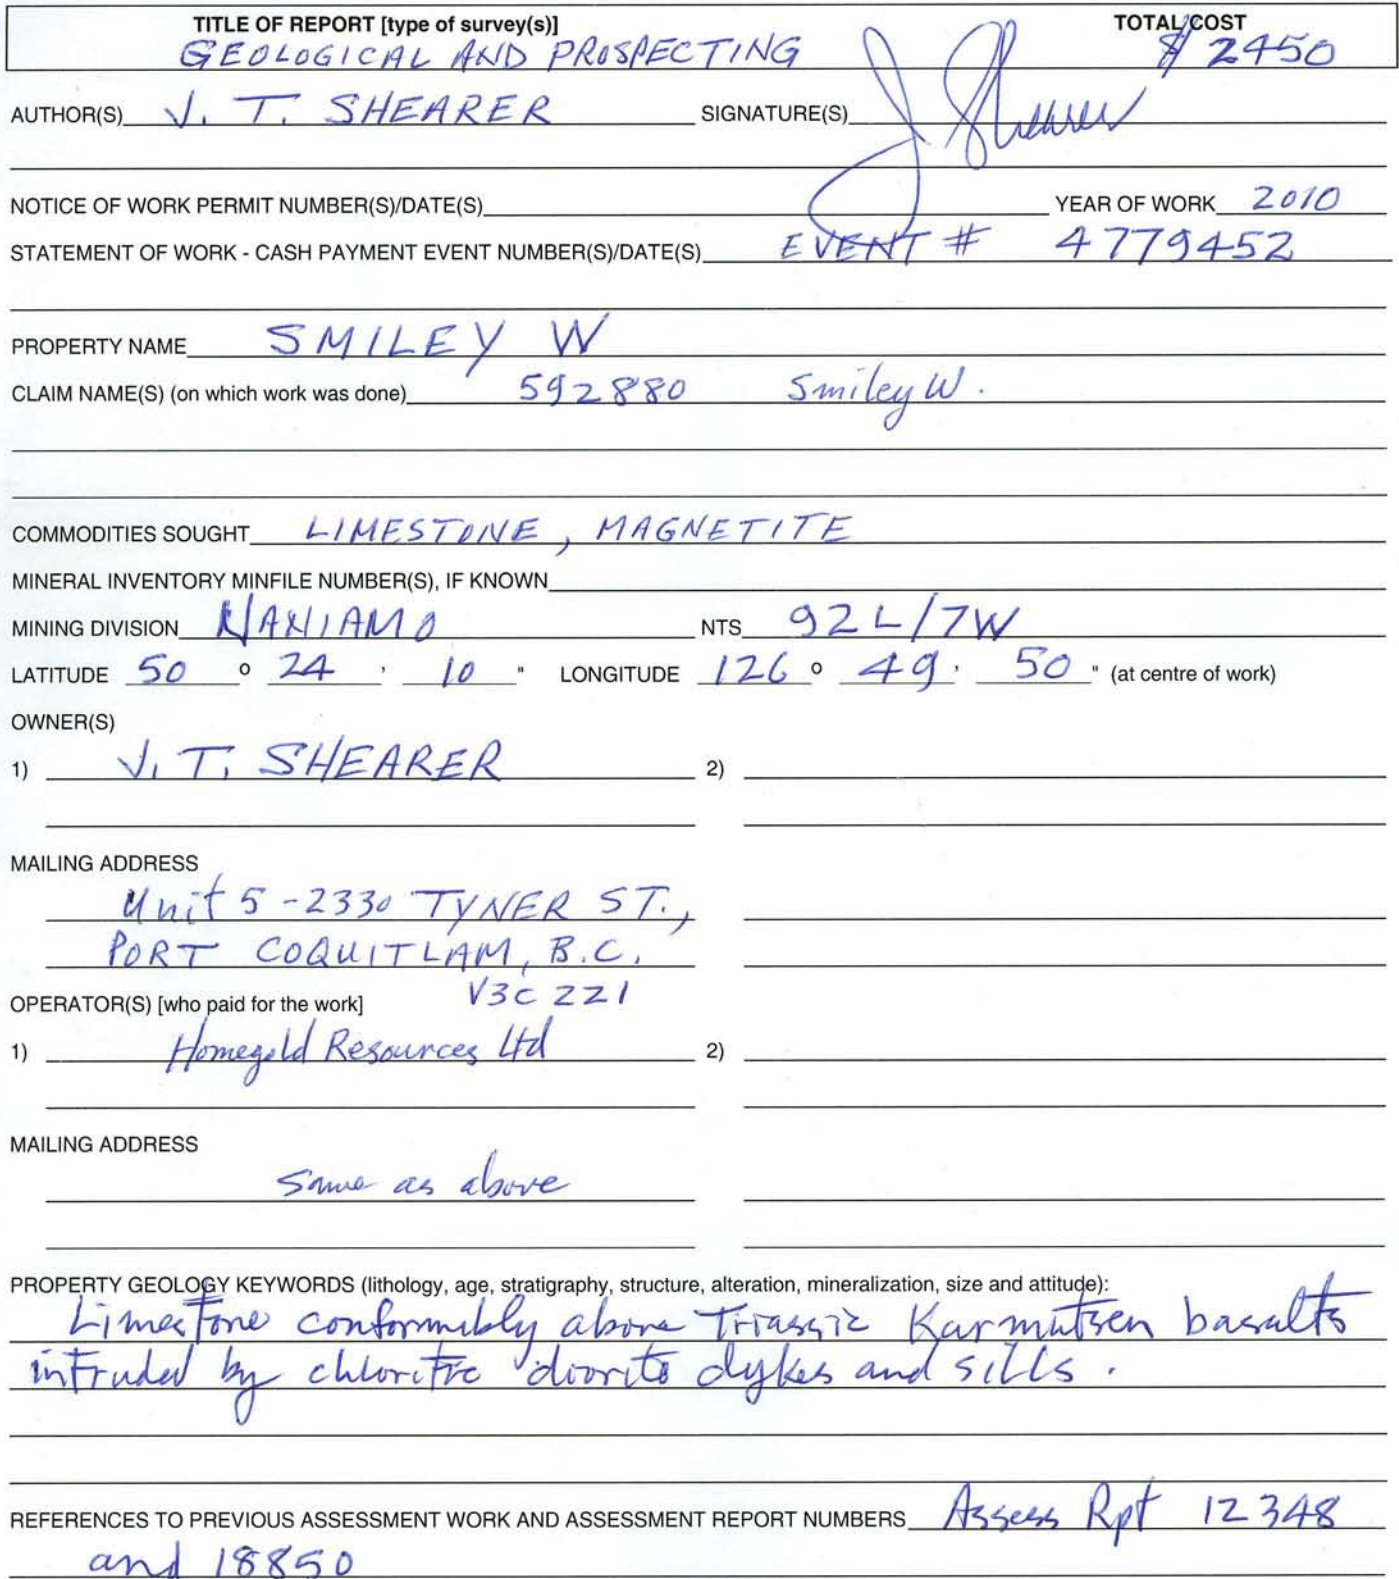 TITLE OF REPORT [type of survey(s)] TOTAL COST
GEOLOGICAL AND PROSPECTING $ 2450
AUTHOR(S) J. T. SHEARER SIGNATURE(S) J Shearer
NOTICE OF WORK PERMIT NUMBER(S)/DATE(S) YEAR OF WORK 2010
STATEMENT OF WORK - CASH PAYMENT EVENT NUMBER(S)/DATE(S) EVENT # 4779452
PROPERTY NAME SMILEY W
CLAIM NAME(S) (on which work was done) 592880 Smiley W.
COMMODITIES SOUGHT LIMESTONE, MAGNETITE
MINERAL INVENTORY MINFILE NUMBER(S), IF KNOWN
MINING DIVISION NANIAMO NTS 92L/7W
LATITUDE 50 ° 24 ' 10 " LONGITUDE 126 ° 49 ' 50 " (at centre of work)
OWNER(S)
1) J. T. SHEARER 2)
MAILING ADDRESS
Unit 5 - 2330 TYNER ST.,
PORT COQUITLAM, B.C.
V3C 2Z1
OPERATOR(S) [who paid for the work]
1) Homegold Resources Ltd 2)
MAILING ADDRESS
Same as above
PROPERTY GEOLOGY KEYWORDS (lithology, age, stratigraphy, structure, alteration, mineralization, size and attitude):
Limestone conformably above Triassic Karmutsen basalts
intruded by chloritic diorite dykes and sills.
REFERENCES TO PREVIOUS ASSESSMENT WORK AND ASSESSMENT REPORT NUMBERS Assess Rpt 12348
and 18850